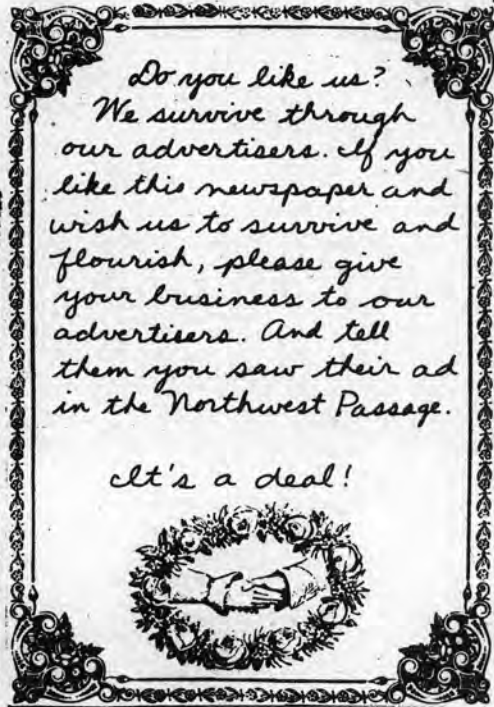 Do you like us?
We survive through
our advertisers. If you
like this newspaper and
wish us to survive and
flourish, please give
your business to our
advertisers. And tell
them you saw their ad
in the Northwest Passage.
It's a deal!